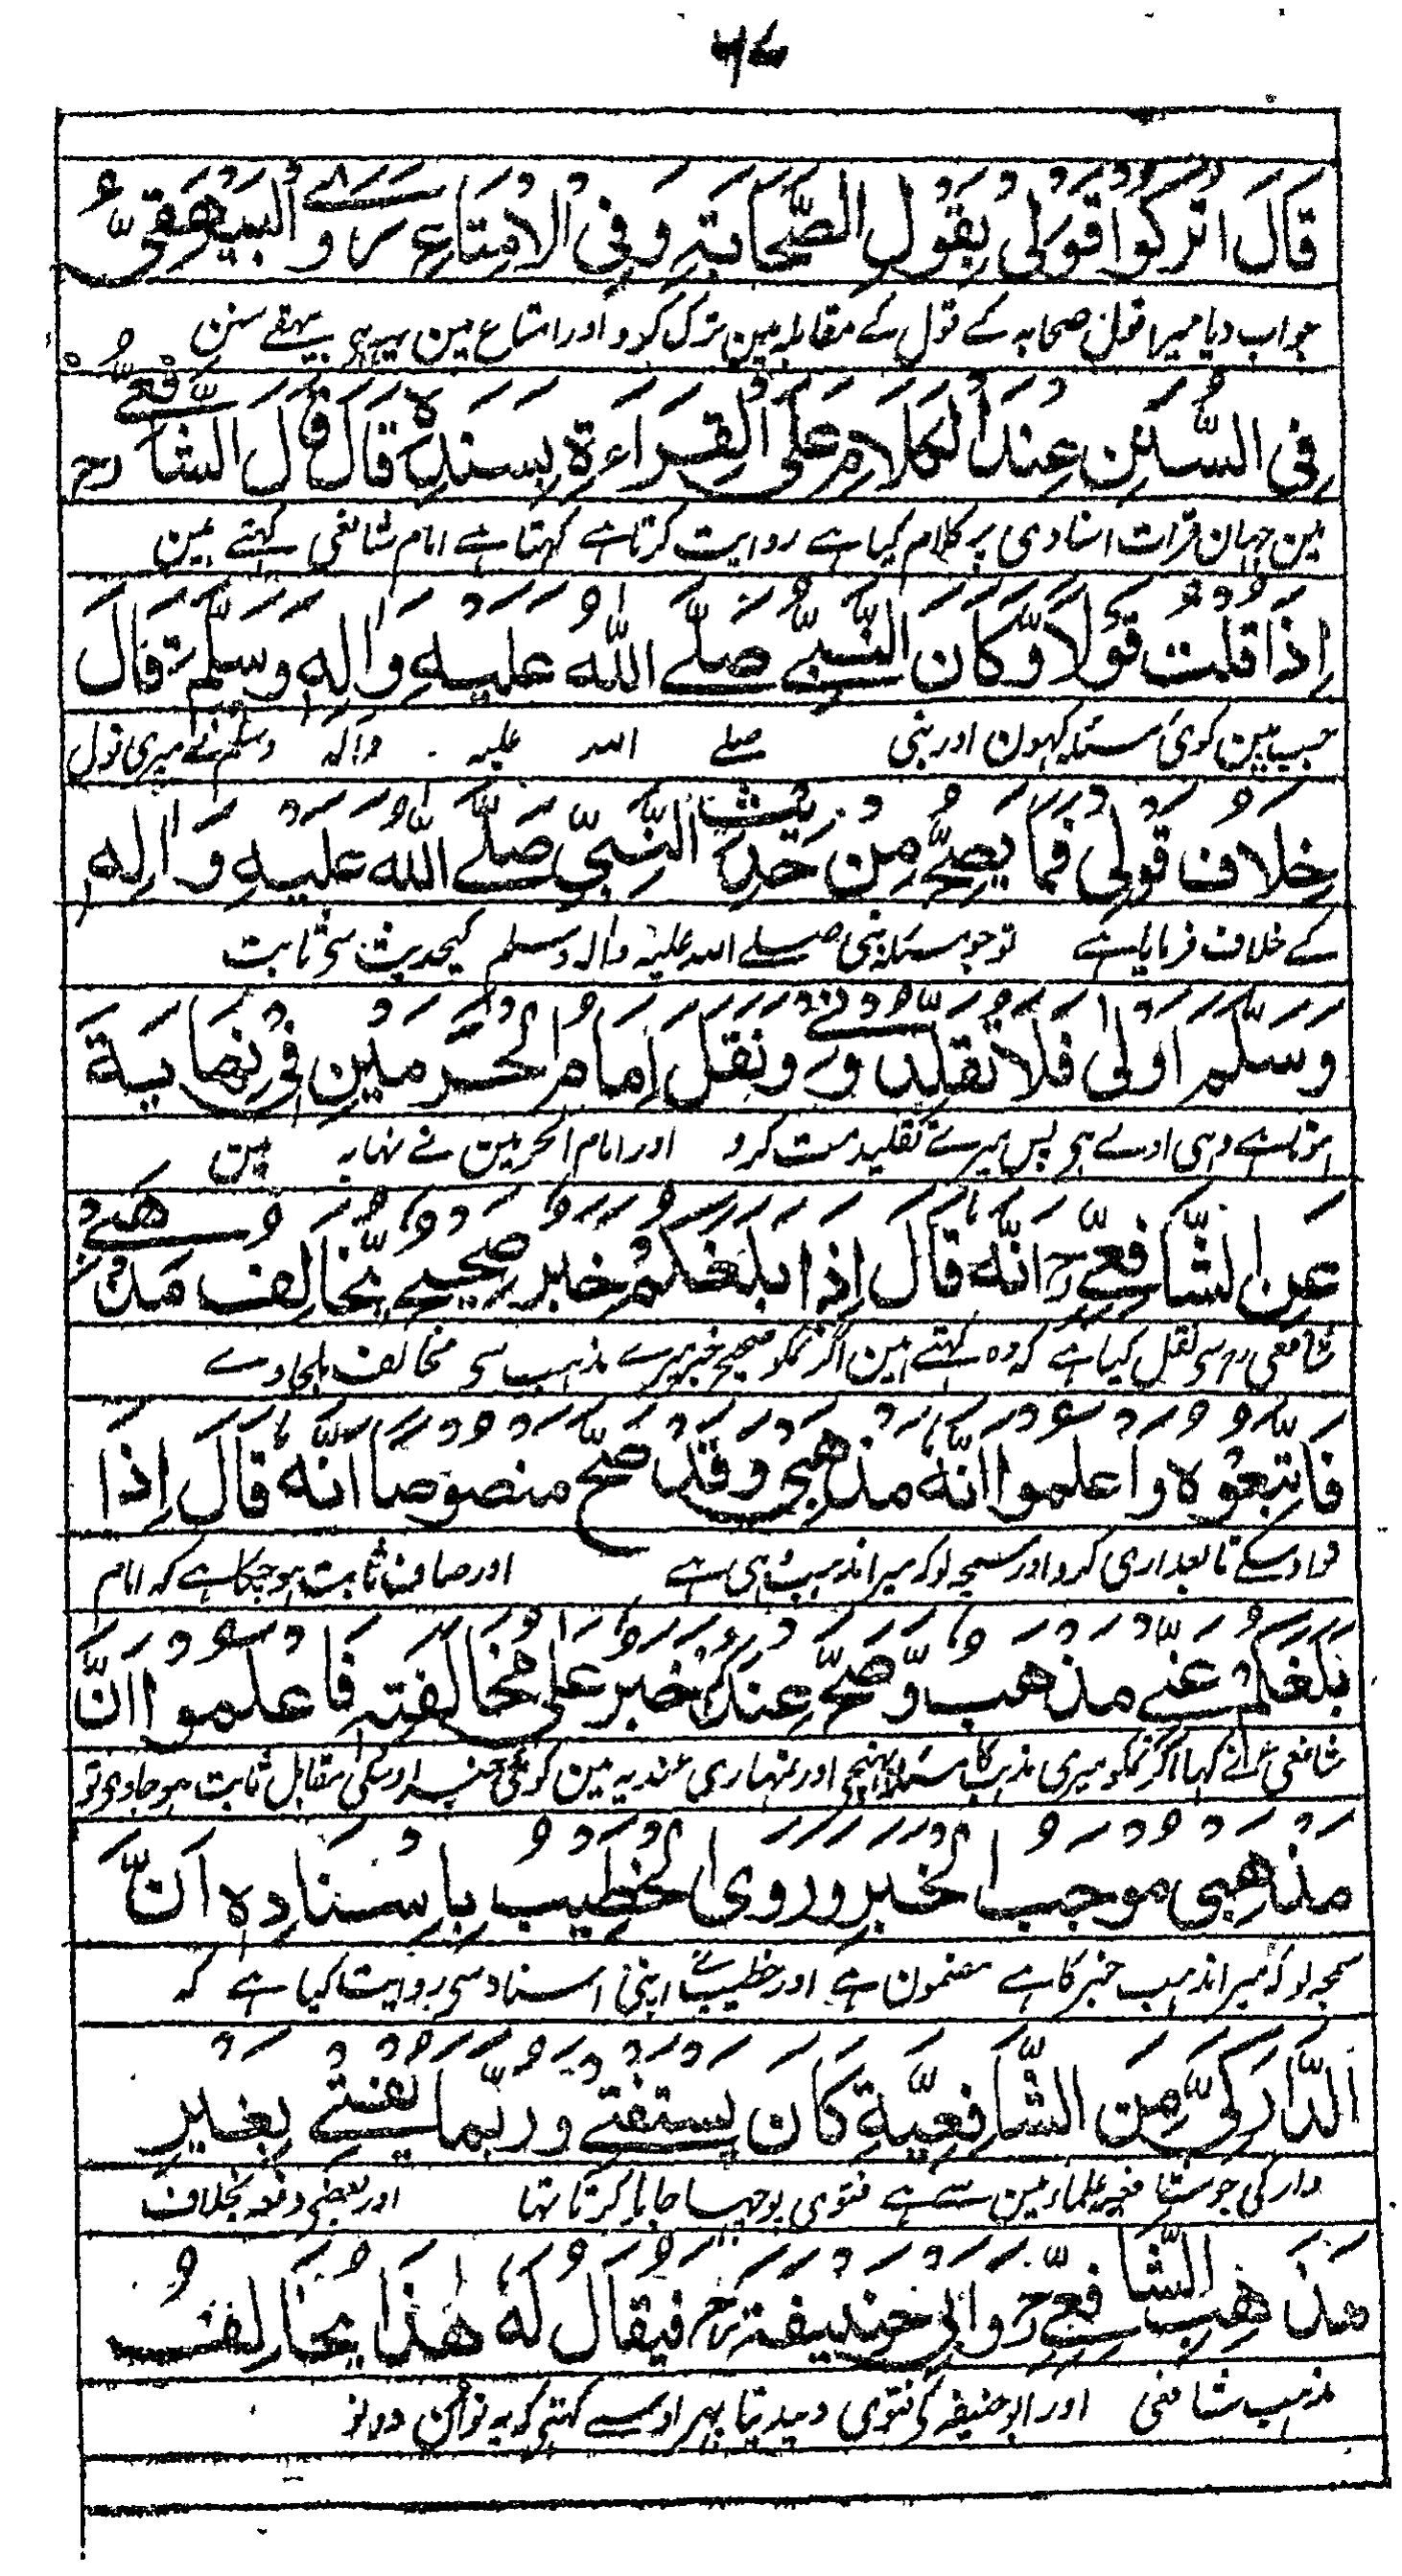 قَالَ اتْرُكُوا قَوْلِي بِقَوْلِ الصَّحَابَةِ وَفِي الْاِمْتَاعِ رَوَى الْبَيْهَقِيُّ
جواب دیا میرا قول صحابہ کے قول کے مقابلہ مین ترک کرو اور امتاع مین یہ ہی بیہقے سنن
فِي السُّنَنِ عِنْدَ الْكَلَامِ عَلَى الْقِرَاءَةِ بِسَنَدِهٖ قَالَ قَالَ الشَّافِعِيُّ رح
مین جہان قرات اسنادی پر کلام کیا ہے روایت کرتا ہے کہتا ہے امام شافعی کہتے ہین
اِذَا قُلْتُ قَوْلًا وَّكَانَ النَّبِيُّ صَلَّى اللّٰهُ عَلَيْهِ وَاٰلِهٖ وَسَلَّمَ قَالَ
جب مین کوئی مسئلہ کہون اور نبی صلے اللہ علیہ وآلہ وسلم نے میری قول
خِلَافَ قَوْلِي فَمَا يَصِحُّ مِنْ حَدِيْثِ النَّبِيِّ صَلَّى اللّٰهُ عَلَيْهِ وَاٰلِهٖ
کے خلاف فرمایا ہے تو جو مسئلہ نبی صلے اللہ علیہ وآلہ وسلم کیحدیث سی ثابت
وَسَلَّمَ اَوْلٰى فَلَا تُقَلِّدُوْنِيْ وَنَقَلَ اِمَامُ الْحَرَمَيْنِ فِيْ نِهَايَةٍ
ہوتا ہے وہی اولے ہی پس میرے تقلید مت کرو اور امام الحرمین نے نہایہ مین
عَنِ الشَّافِعِيِّ رح اَنَّهٗ قَالَ اِذَا بَلَغَكُمْ خَبَرٌ صَحِيْحٌ يُّخَالِفُ مَذْهَبِيْ
شافعی رہ سی نقل کیا ہے کہ وہ کہتے ہین اگر تمکو صحیح خبر میرے مذہب سی مخالف ملجاوے
فَاتَّبِعُوْهُ وَاعْلَمُوْا اَنَّهٗ مَذْهَبِيْ وَقَدْ صَحَّ مَنْصُوْصًا اَنَّهٗ قَالَ اِذَا
تو اوسکے تابعداری کرو اور سمجہ لو کہ میرا مذہب وہی ہے اور صاف ثابت ہو چکا ہے کہ امام
بَلَغَكُمْ عَنِّيْ مَذْهَبٌ وَّصَحَّ عِنْدَكُمْ خَبَرٌ عَلٰى مُخَالَفَتِهٖ فَاعْلَمُوْا اَنَّ
شافعی نے کہا اگر تمکو میری مذہب کا مسئلہ پہنچی اور تمہاری عندیہ مین کوئی خبر اوسکی مقابل ثابت ہو جاوی تو
مَذْهَبِيْ مُوْجَبُ الْخَبَرِ وَرَوَى الْخَطِيْبُ بِاِسْنَادِهٖ اَنَّ
سمجہ لو کہ میرا مذہب خبر کا ہے مضمون ہے اور خطیب نے اپنی اسناد سی روایت کیا ہے کہ
الدَّارَكِيَّ مِنَ الشَّافِعِيَّةِ كَانَ يُسْتَفْتٰى وَرُبَّمَا يُفْتِيْ بِغَيْرِ
دارکی جو شافعیہ علماء مین سے ہے فتوی پوچہا جایا کرتا تہا اور بعضی دفعہ بخلاف
مَذْهَبِ الشَّافِعِيِّ رح وَاَبِيْ حَنِيْفَةَ رح فَيُقَالُ لَهٗ هٰذَا يُخَالِفُ
مذہب شافعی اور ابو حنیفہ کی فتوی دیدیتا پہر اوسے کہتی کہ یہ تو ان دونو